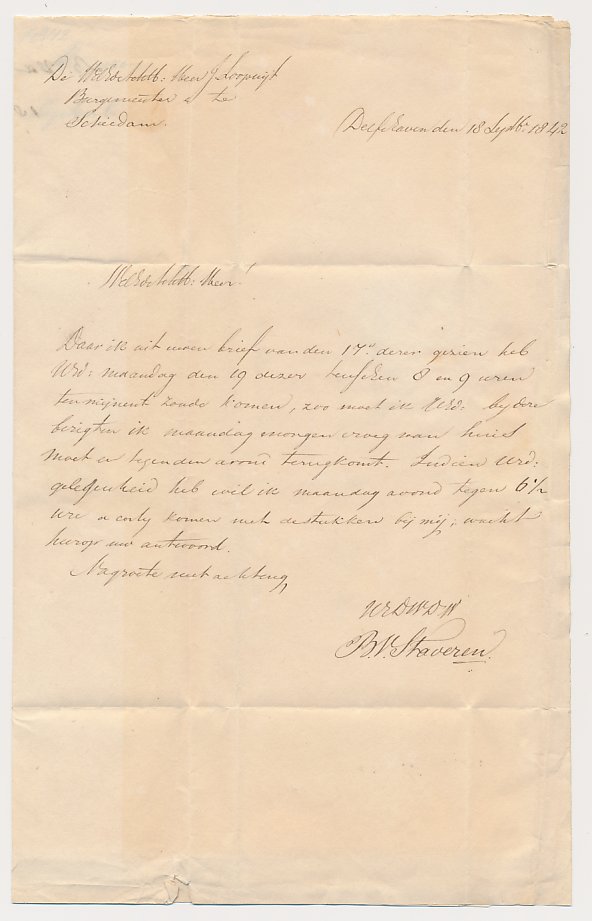 De WelEdAchtb: Heer J Loopuijt
Burgemeester te
Schiedam.
Delfshaven den 18 Septbr 1842
WelEdeAchtb: Heer!
Daar ik uit uwen brief van den 17e dezer gezien heb
UEd: maandag den 19 dezer tusschen 8 en 9 uren
ten mijnent zoude komen, zoo moet ik UEd: by deze
berigten ik maandag morgen vroeg van huis
moet en tegen den avond terugkomt. Indien UEd:
gelegenheid heb wil ik maandag avond tegen 6 1/2
ure a komen met de stukken bij mij; wacht
hierop uw antwoord.
Na groete met achting
UEDWDW
B V. Staveren.